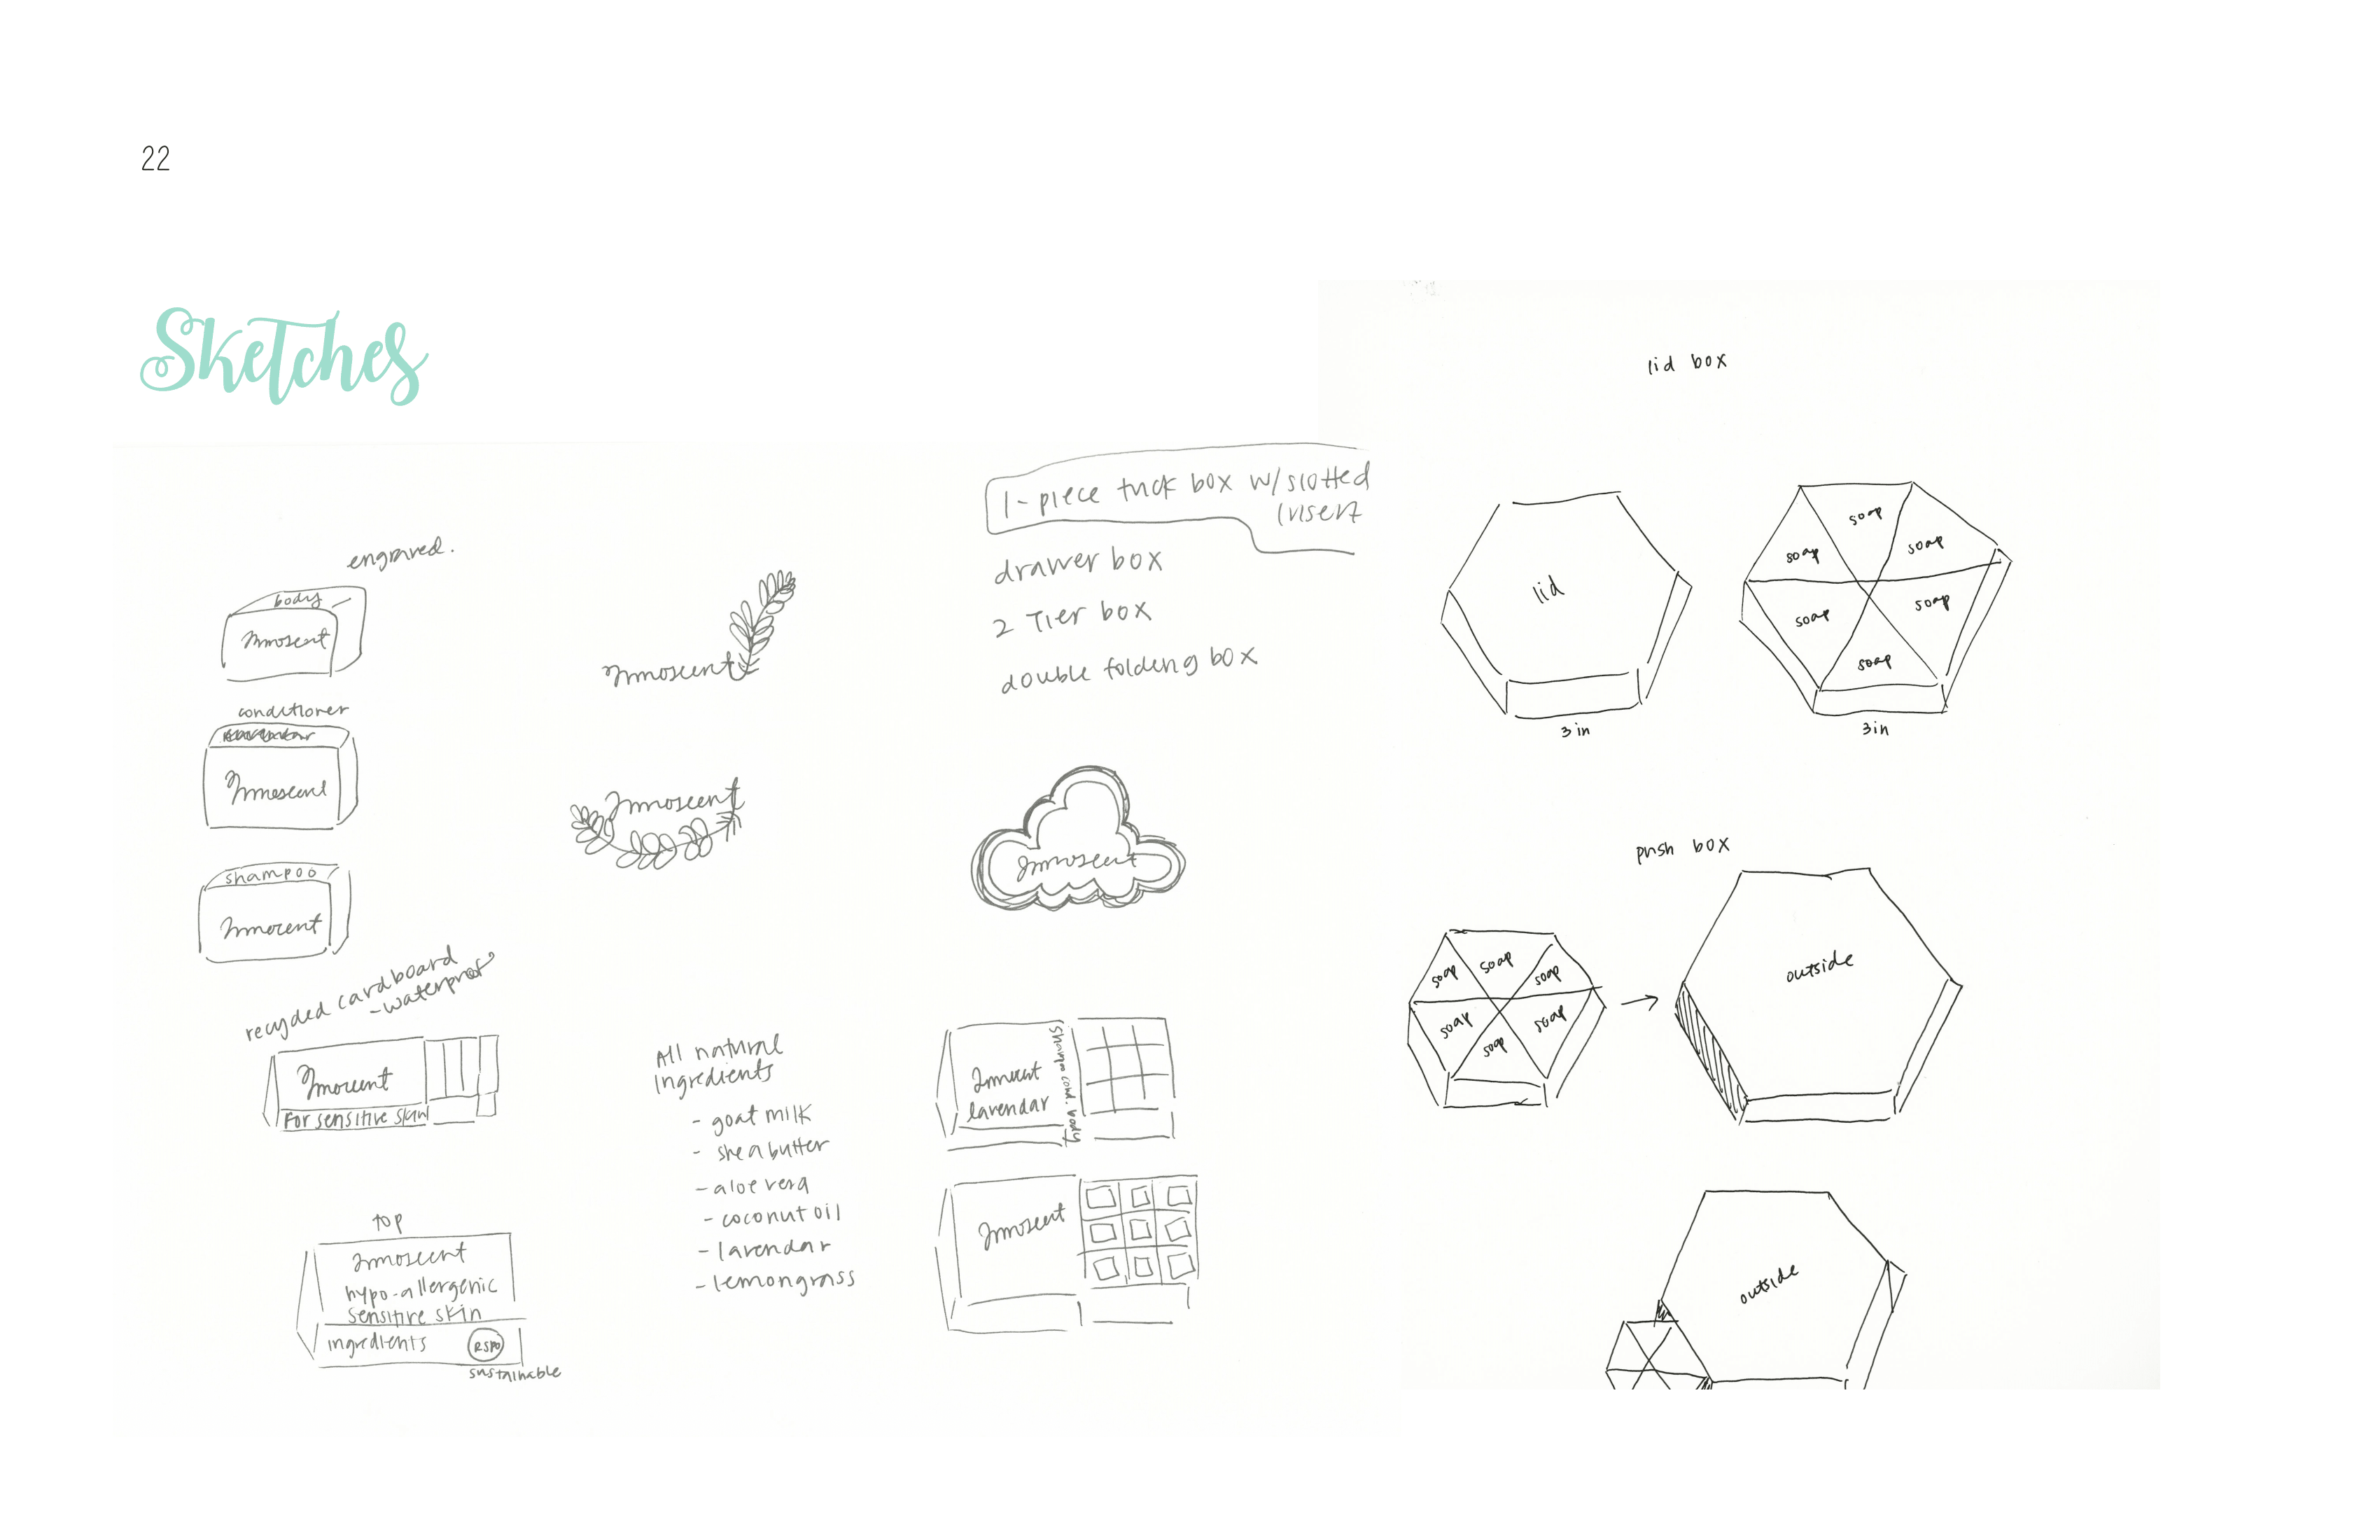 22
Sketches
engraved.
body
Innoscent
conditioner
Innoscent
shampoo
Innoscent
recycled cardboard
-waterproof
Innoscent
For sensitive skin
top
Innoscent
hypo-allergenic
sensitive skin
ingredients
RSPO
sustainable
Innoscent
Innoscent
All natural
ingredients
- goat milk
- shea butter
- aloe vera
- coconut oil
- lavendar
- lemongrass
1-piece tuck box w/slotted
insert
drawer box
2 Tier box
double folding box
Innoscent
Innoscent
lavendar
shampoo cond. body
Innoscent
lid box
lid
3in
soap
soap
soap
soap
soap
soap
3in
push box
soap
soap
soap
soap
soap
soap
outside
outside